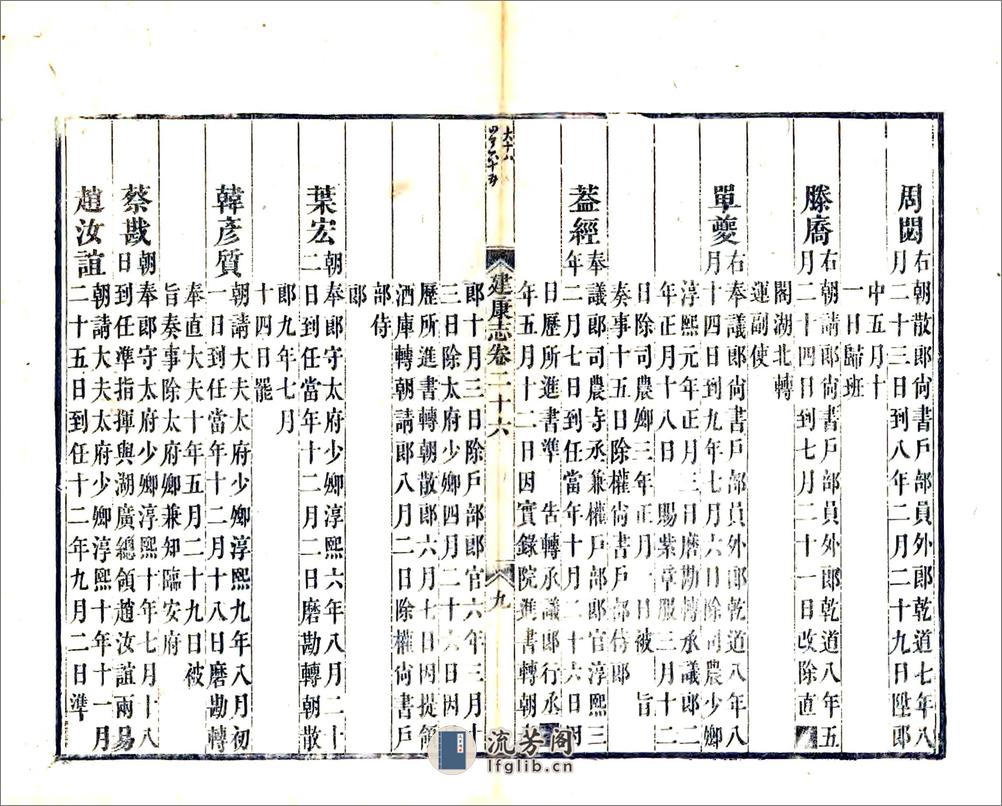 周閎
右朝散郎尚書戶部員外郎乾道七年八
月二十三日到八年二月二十九日陞郎
中五月十
一日歸班
滕廥
右朝請郎尚書戶部員外郎乾道八年五
月二十四日到七月二十一日改除直
閣湖北轉
運副使
單夔
右奉議郎尚書戶部員外郎乾道八年八
月十四日到九年七月六日除司農少卿
淳熙元年正月三日磨勘轉承議郎二
年正月十八日 賜紫章服三月十二
日除司農卿三年正月 日被 旨
奏事十五日除權尚書戶部侍郎
蓋經
奉議郎司農寺丞兼權戶部郎官淳熙三
年二月七日到任當年十月二十六日因
日歷所進書準 告轉承議郎行丞
年五月十二日因實錄院進書轉朝
大十八
四百六十五
建康志卷二十六
九
郎十月三日除戶部郎官六年三月十
三日除太府少卿四月二十六日因
歷所進書轉朝散郎六月七日因提領
酒庫轉朝請郎八月二日除權尚書戶
部侍
郎
葉宏
朝奉郎守太府少卿淳熙六年八月二十
二日到任當年十二月二日磨勘轉朝散
郎九年七月
十四日罷
韓彥質
朝請大夫太府少卿淳熙九年八月初
一日到任當年十二月十八日磨勘轉
奉直大夫十年五月二十九日被
旨奏事除太府卿兼知臨安府
蔡戡
朝奉郎守太府少卿淳熙十年七月十八
日到任準指揮與湖廣總領趙汝誼兩易
趙汝誼
朝請大夫太府少卿淳熙十年十一月
二十五日到任十二年九月二日準
流芳閣
lfglib.cn